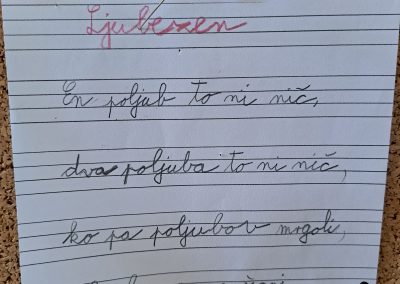 Ljubezen
En poljub to ni nič,
dva poljuba to ni nič,
ko pa poljubov mrgoli,